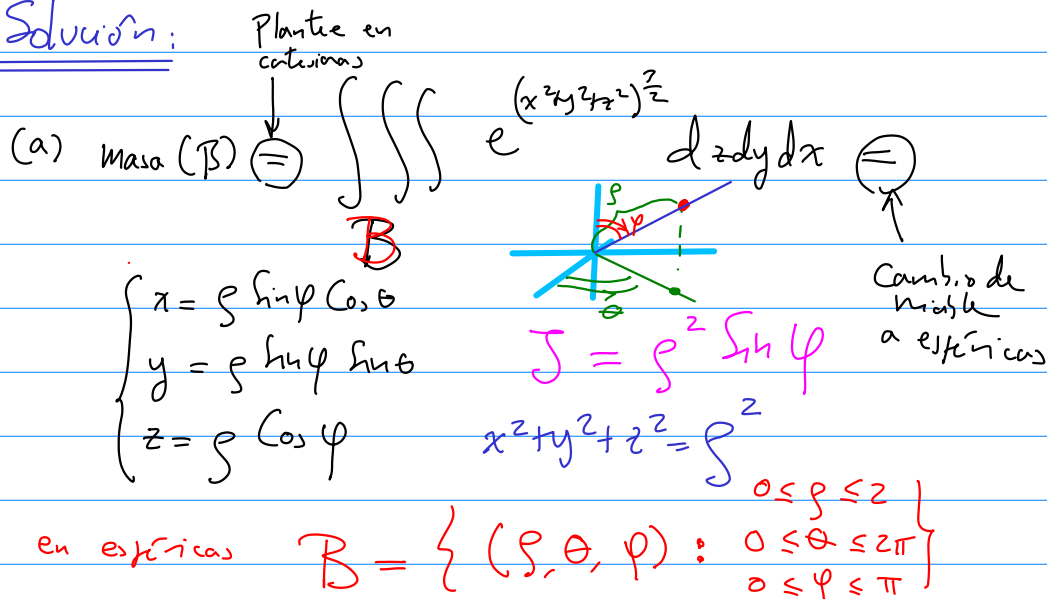 Solución:
Plantee en
catesianas
(a) masa (B) = ∭ e^(x²+y²+z²)^3/2 dzdydx =
B
ρ
φ
θ
Cambio de
a esféricas
x = ρ Sinφ Cosθ
y = ρ Sinφ Sinθ
z = ρ Cosφ
J = ρ² Sin φ
x²+y²+z² = ρ²
en esféricas B = { (ρ, θ, φ) : 0 ≤ ρ ≤ 2
0 ≤ θ ≤ 2π
0 ≤ φ ≤ π }